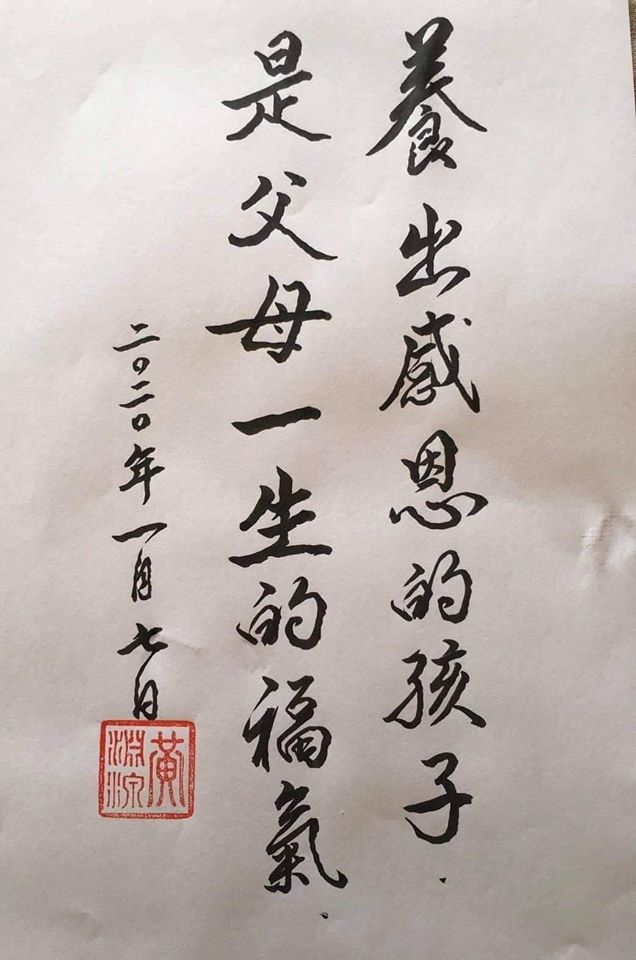 養出感恩的孩子.
是父母一生的福氣.
二〇二〇年一月七日
黃淵源